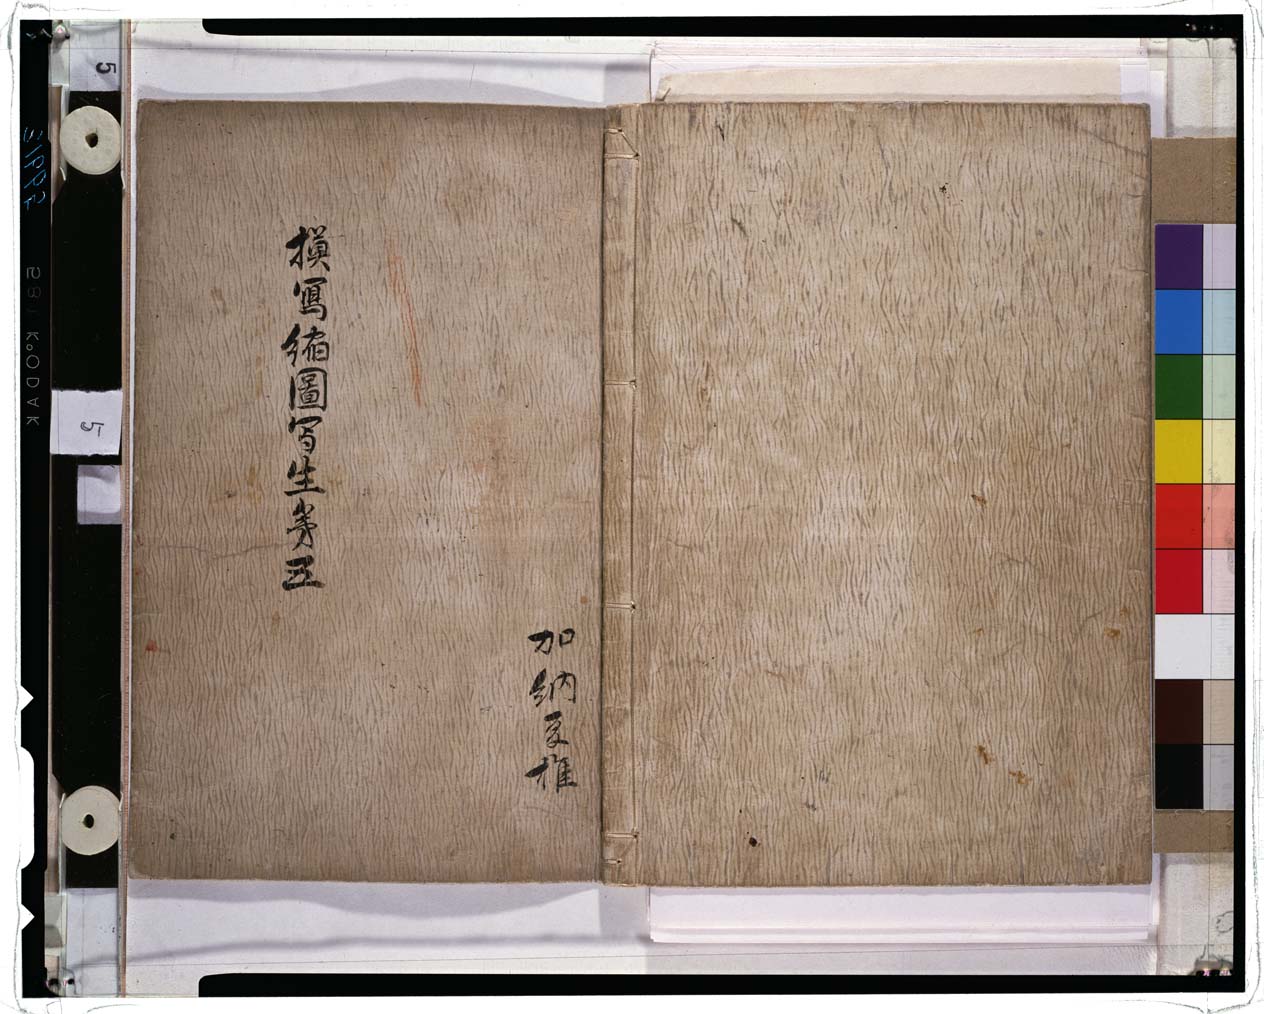 摸寫縮圖写生第五
加納夏雄
5
5
581 KODAK